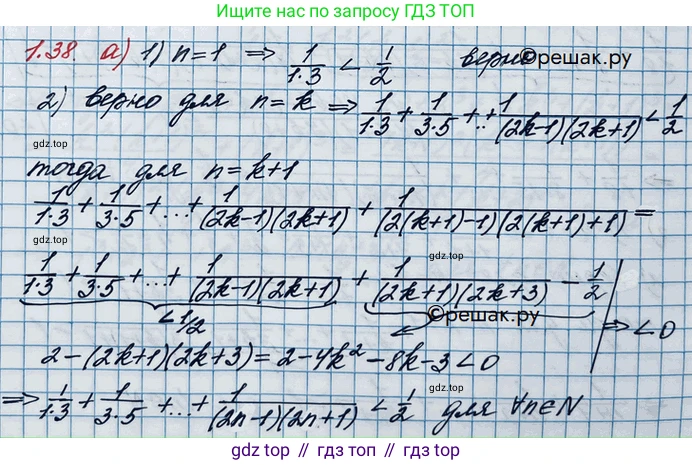 Ищите нас по запросу ГДЗ ТОП
1.38. а) 1) n=1 ⇒ 1/(1·3) < 1/2 верно
©решак.ру
2) верно для n=k ⇒ 1/(1·3) + 1/(3·5) + ... + 1/((2k-1)(2k+1)) < 1/2
gdz.top
тогда для n=k+1
1/(1·3) + 1/(3·5) + ... + 1/((2k-1)(2k+1)) + 1/((2(k+1)-1)(2(k+1)+1)) =
gdz.top
1/(1·3) + 1/(3·5) + ... + 1/((2k-1)(2k+1)) + 1/((2k+1)(2k+3)) - 1/2 | ⇒ <0
<1/2
©решак.ру
2-(2k+1)(2k+3) = 2-4k²-8k-3 <0
gdz.top
⇒ 1/(1·3) + 1/(3·5) + ... + 1/((2n-1)(2n+1)) < 1/2 для ∀n∈N
gdz.top // гдз.топ // gdz.top // гдз.топ // gdz.top